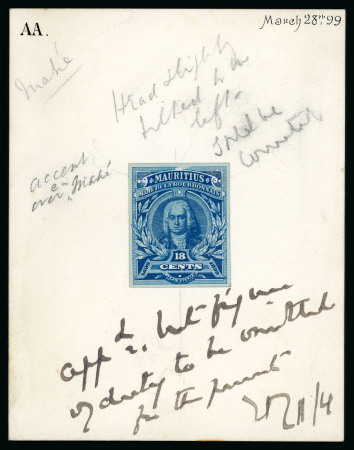 AA.
March 28th. 99
Mahé
Head slightly
tilted to the
left.
Should be
corrected
accent
over "Mahé"
MAURITIUS
MAHÉ DE LABOURDONNAIS
18
CENTS
appd. but figure
of duty to be omitted
for the present
11/4